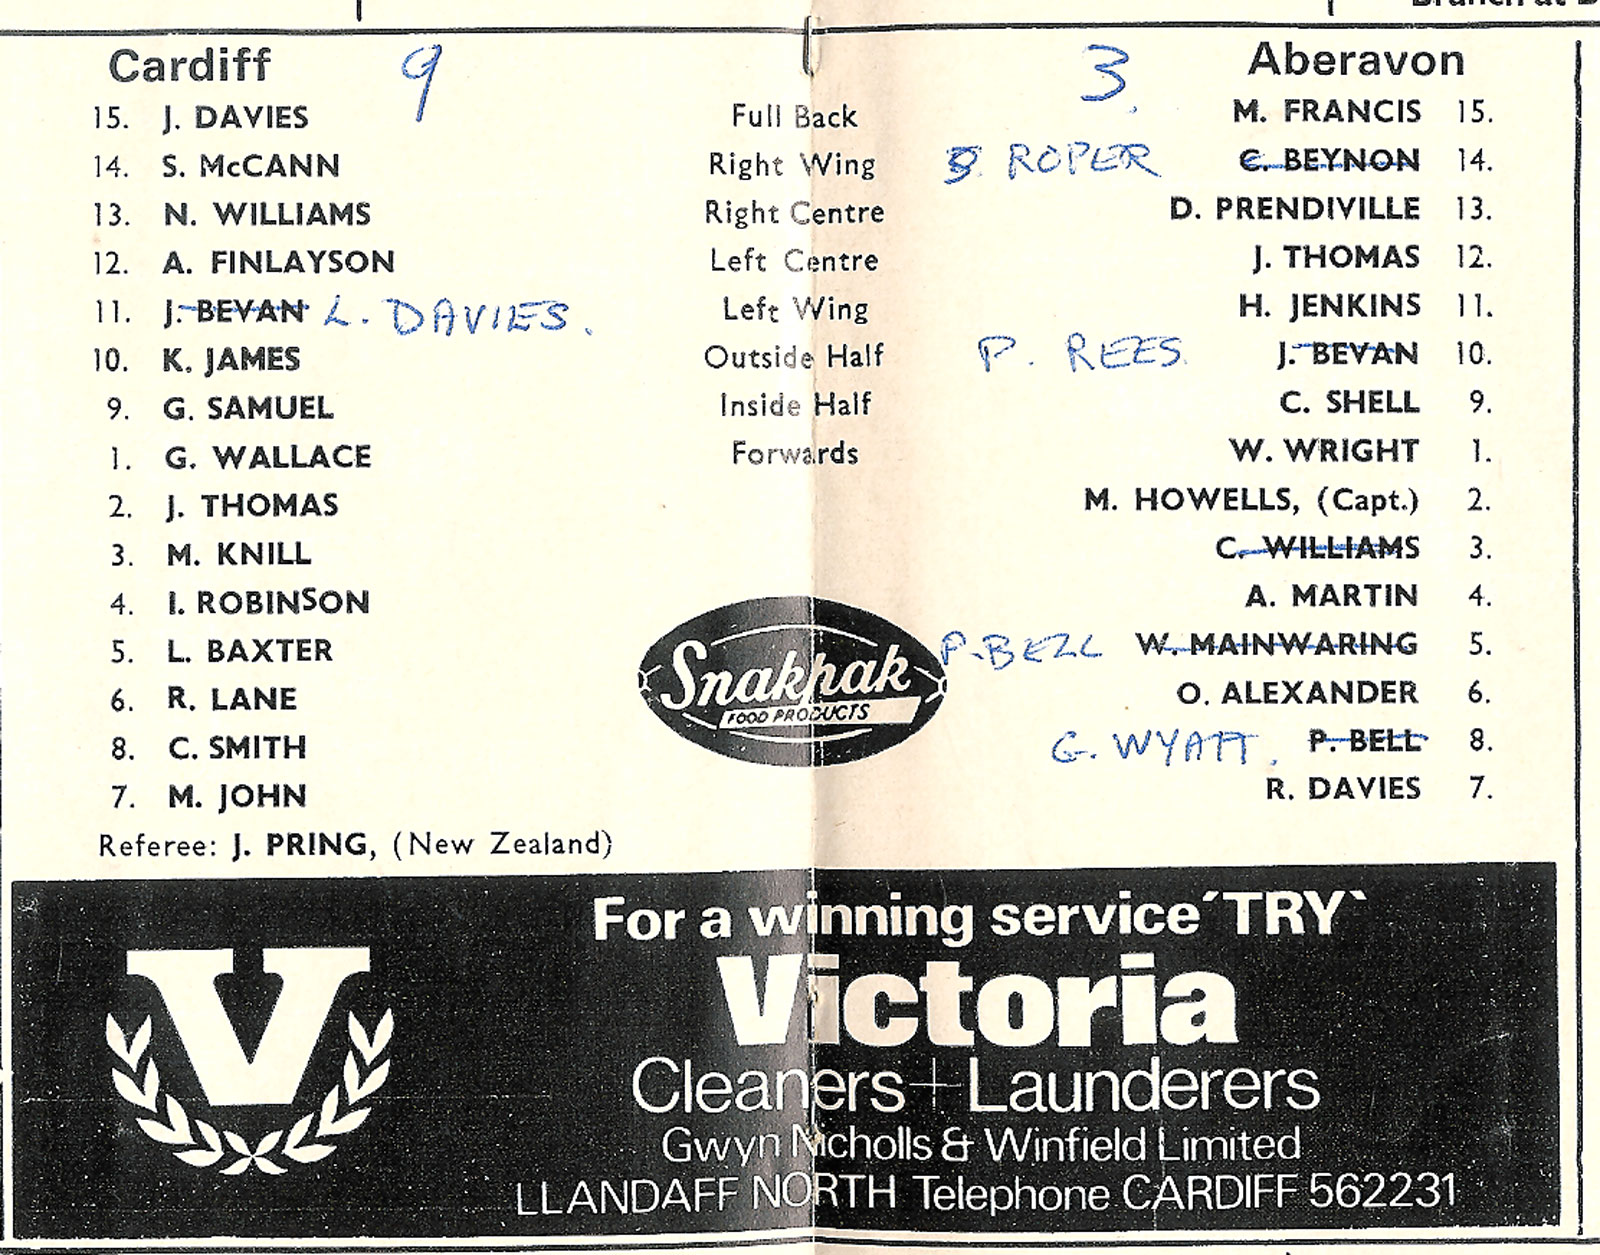 Cardiff 9 3. Aberavon
15. J. DAVIES Full Back M. FRANCIS 15.
14. S. McCANN Right Wing ROPER C. BEYNON 14.
13. N. WILLIAMS Right Centre D. PRENDIVILLE 13.
12. A. FINLAYSON Left Centre J. THOMAS 12.
11. J. BEVAN L. DAVIES. Left Wing H. JENKINS 11.
10. K. JAMES Outside Half P. REES J. BEVAN 10.
9. G. SAMUEL Inside Half C. SHELL 9.
1. G. WALLACE Forwards W. WRIGHT 1.
2. J. THOMAS M. HOWELLS, (Capt.) 2.
3. M. KNILL C. WILLIAMS 3.
4. I. ROBINSON A. MARTIN 4.
5. L. BAXTER P. BELL W. MAINWARING 5.
6. R. LANE O. ALEXANDER 6.
8. C. SMITH G. WYATT. P. BELL 8.
7. M. JOHN R. DAVIES 7.
Snakpak
FOOD PRODUCTS
Referee: J. PRING, (New Zealand)
V
For a winning service ´TRY`
Victoria
Cleaners + Launderers
Gwyn Nicholls & Winfield Limited
LLANDAFF NORTH Telephone CARDIFF 562231